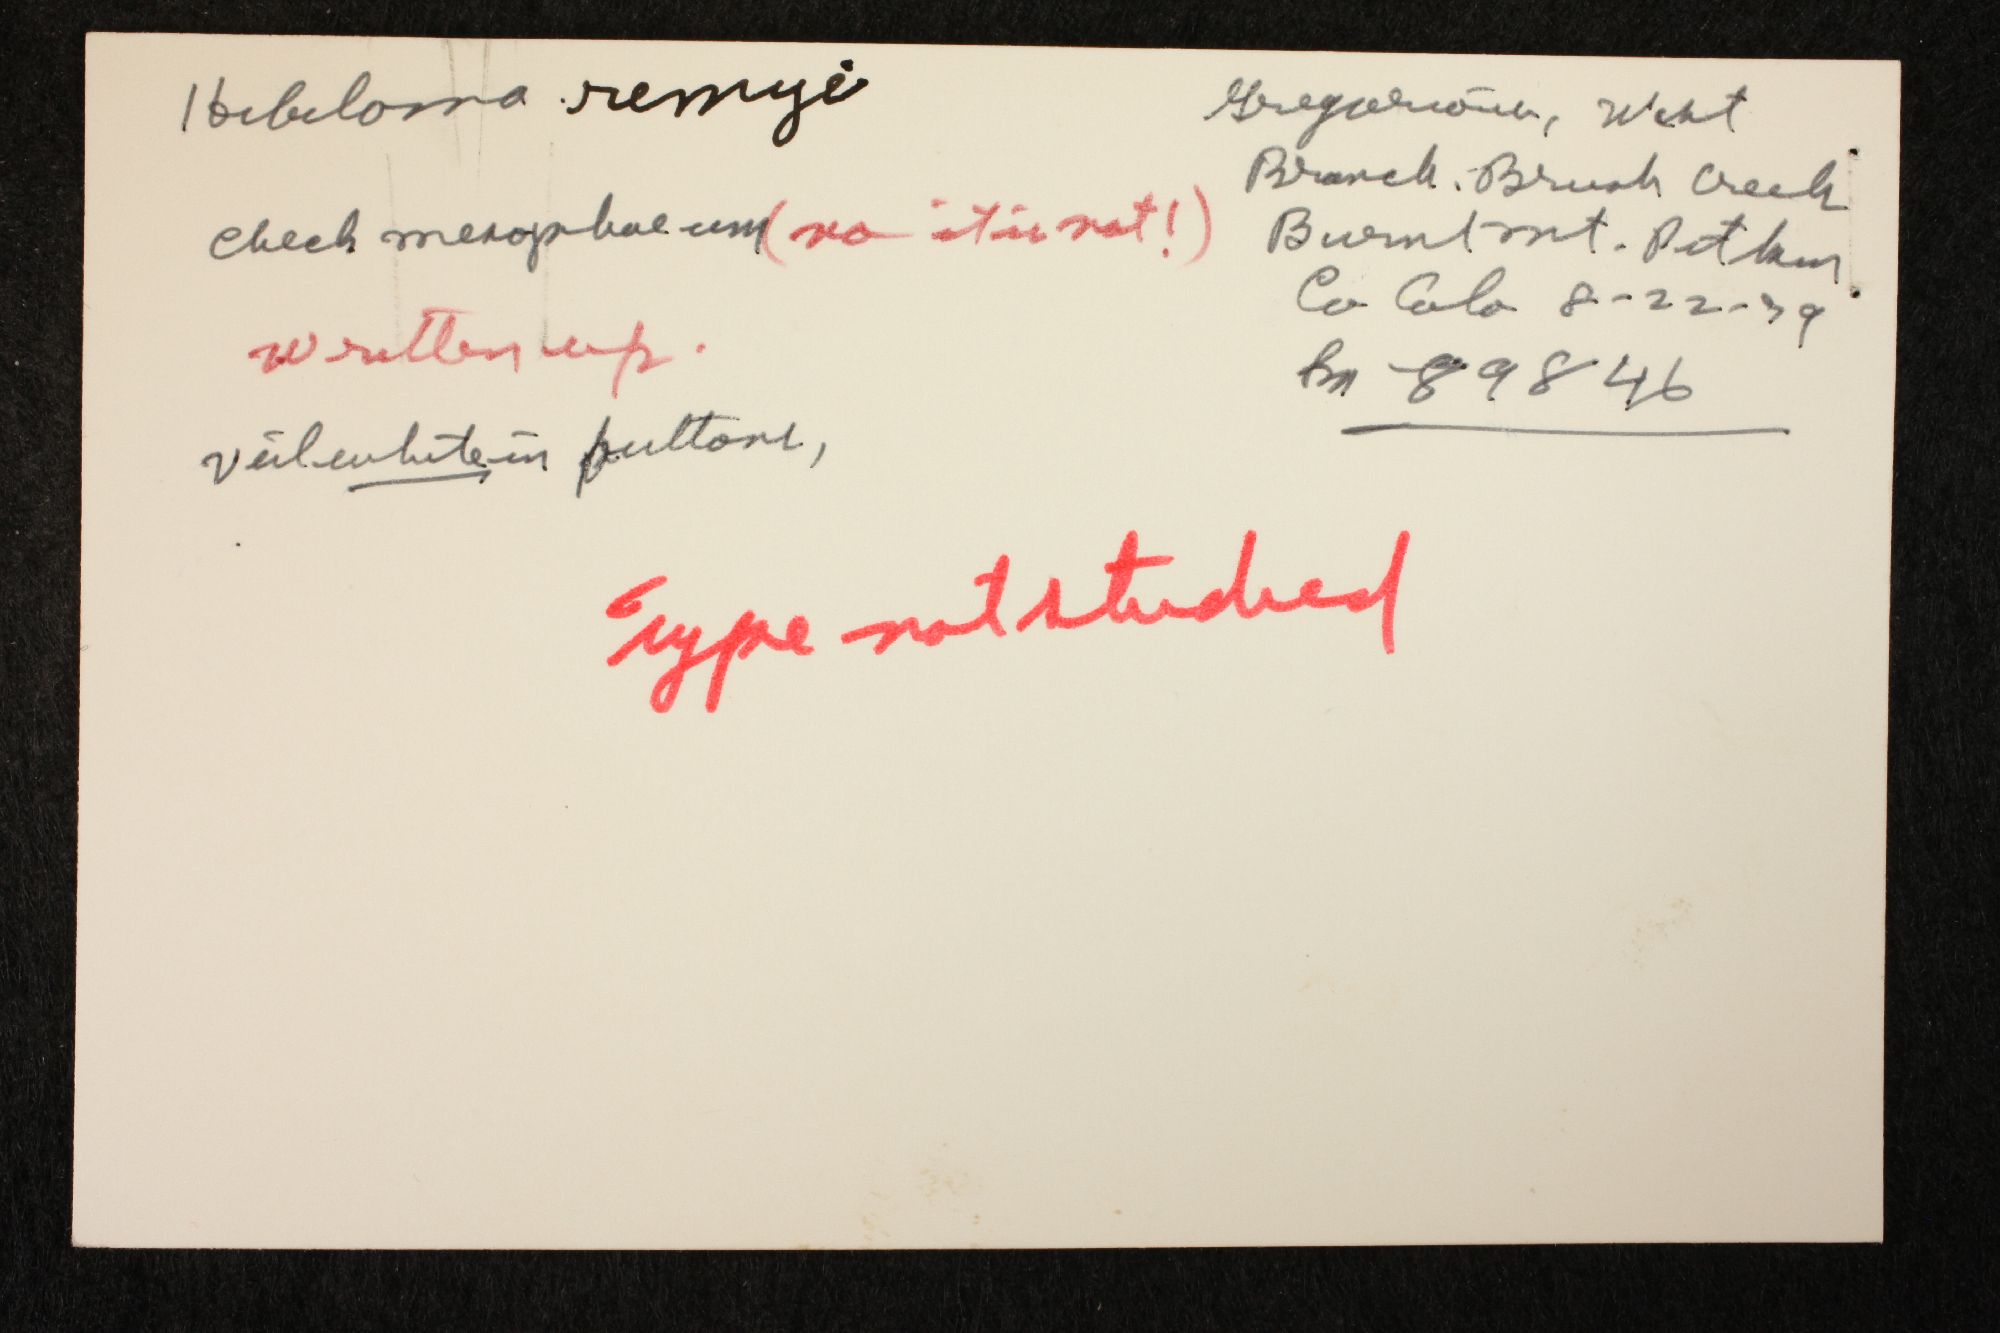 Hebeloma remyi
check mesophaeum (no it is not!)
written up.
veil white in buttons,
Gregarious, West
Branch. Brush Creek
Burnt mt. Pitkin
Co Colo 8-22-79
Sm - 89846
Type not studied